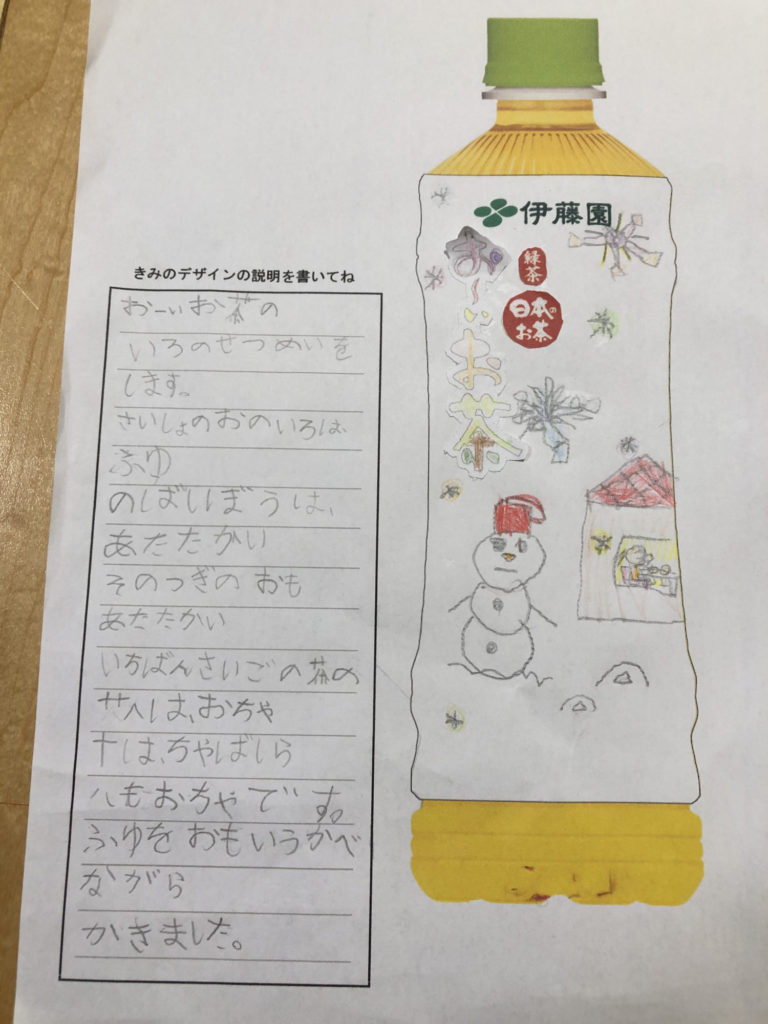 伊藤園
緑茶
日本の
お茶
お～いお茶
きみのデザインの説明を書いてね
おーいお茶の
いろのせつめいを
します。
さいしょのおのいろは
ふゆ
のばいぼうは、
あたたかい
そのつぎの おも
あたたかい
いちばんさいごの茶の
サ人は、おちゃ
十は、ちゃばしら
ハもおちゃです。
ふゆを おもいうかべ
ながら
かきました。